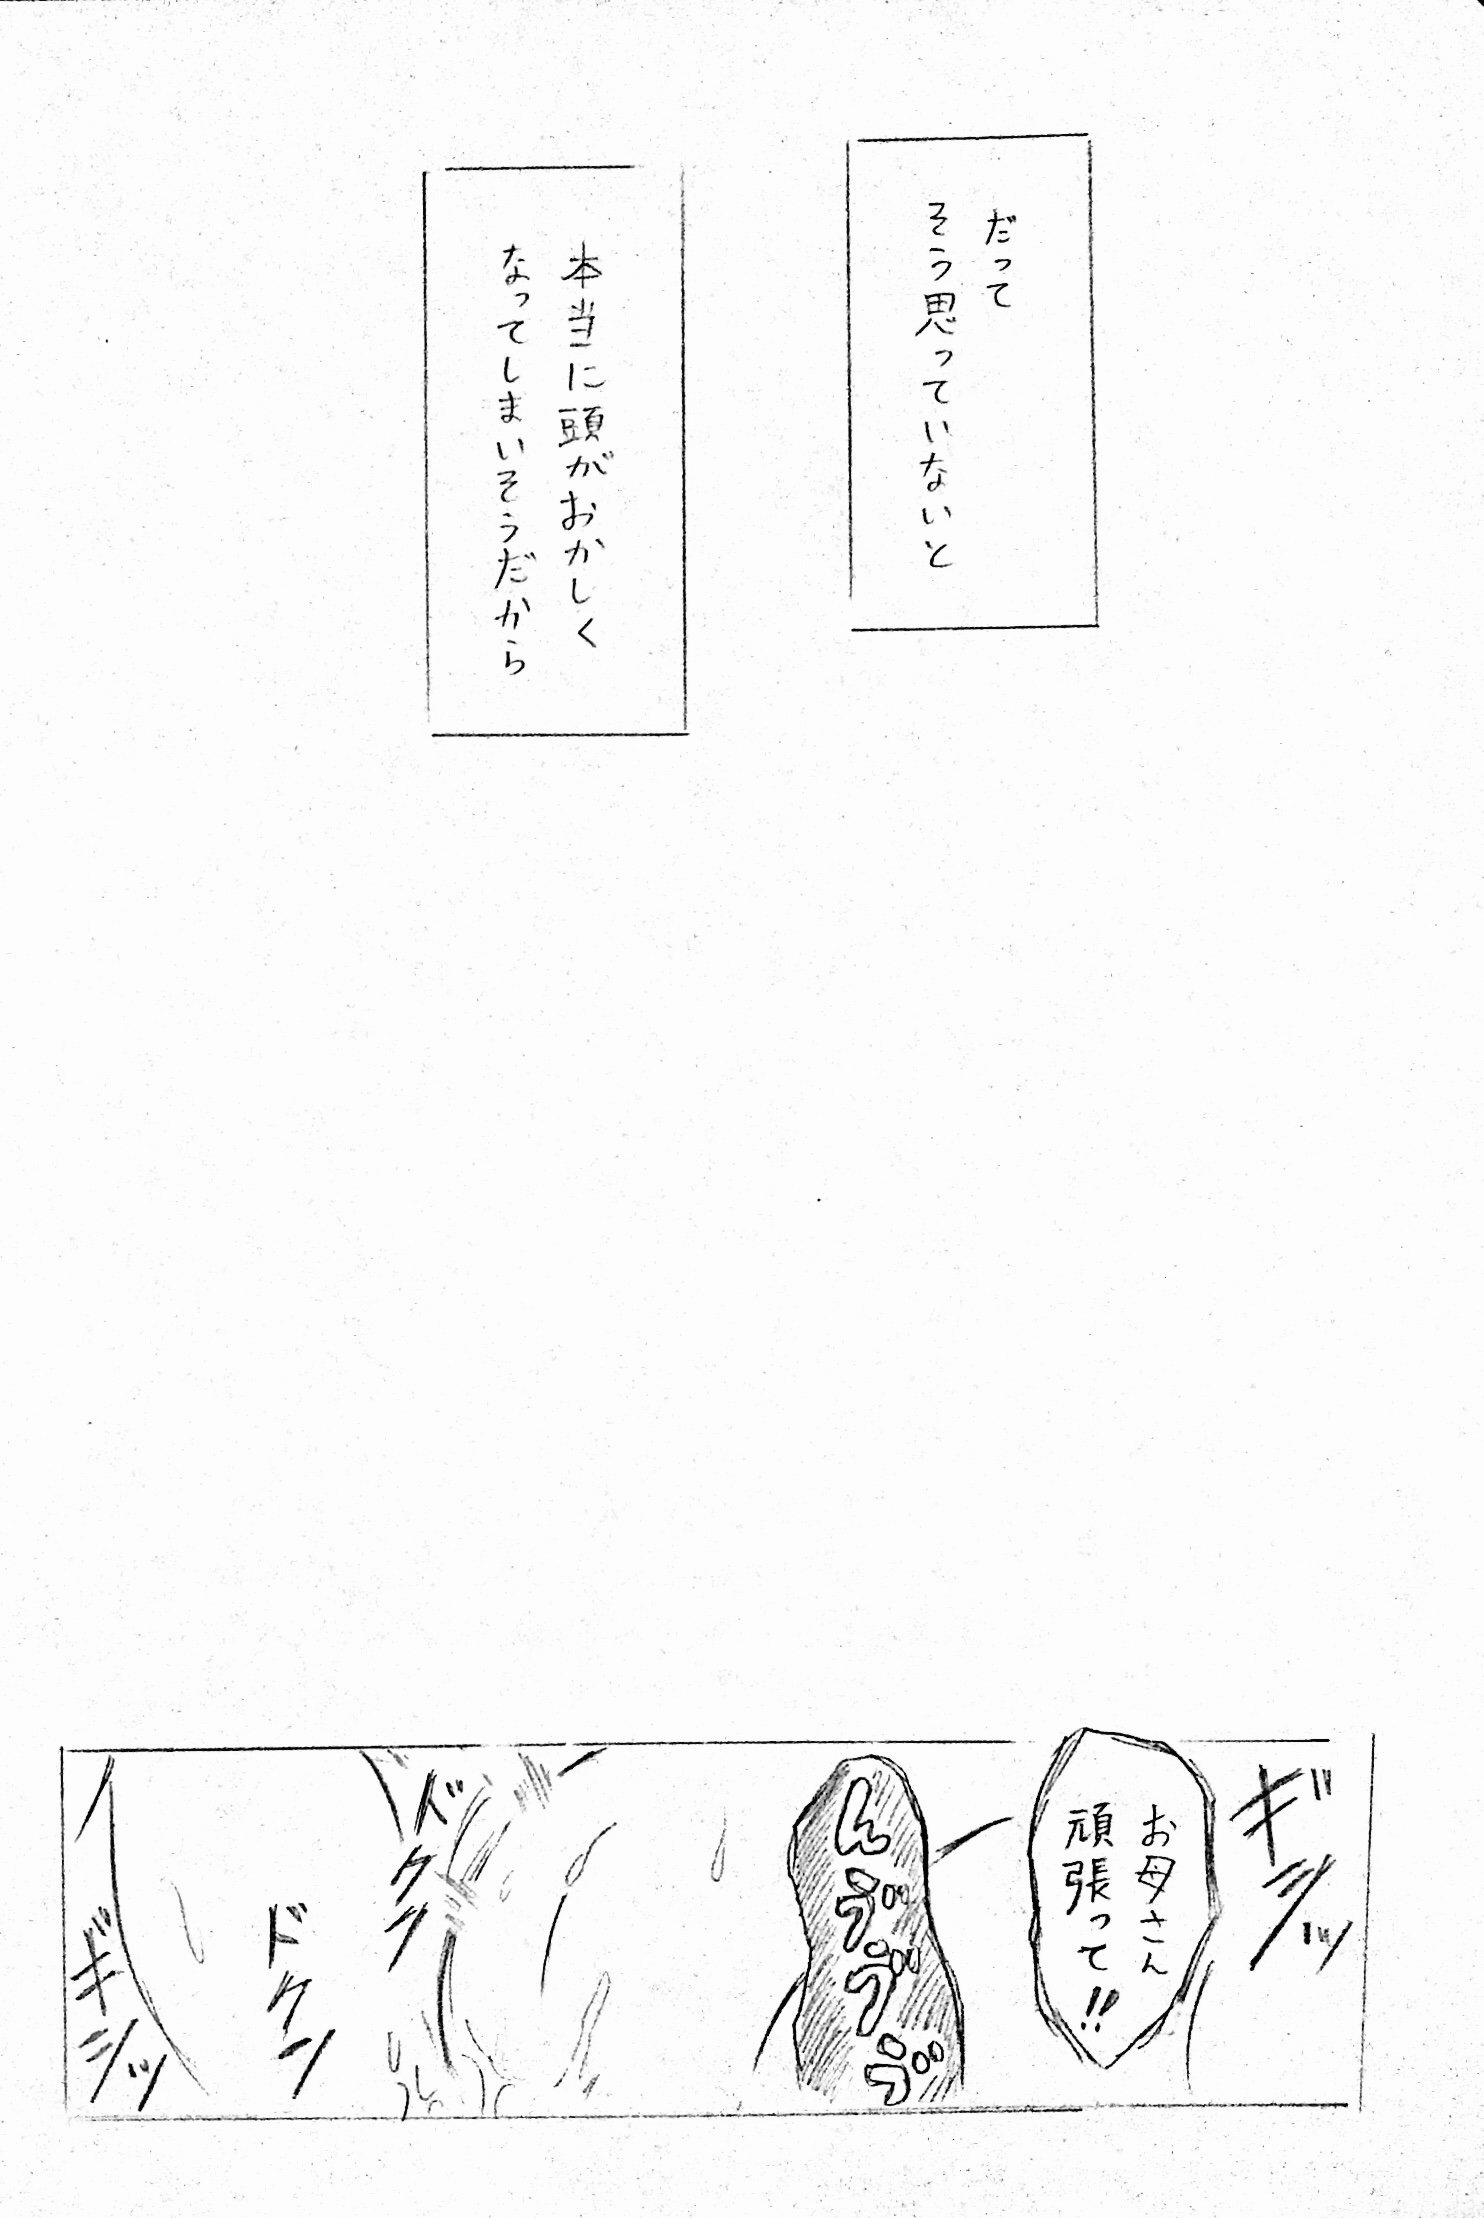 だって
そう思っていないと
本当に頭がおかしく
なってしまいそうだから
ギシッ
お母さん
頑張って!!
んゔゔゔ
ドクン
ドクン
ギシッ